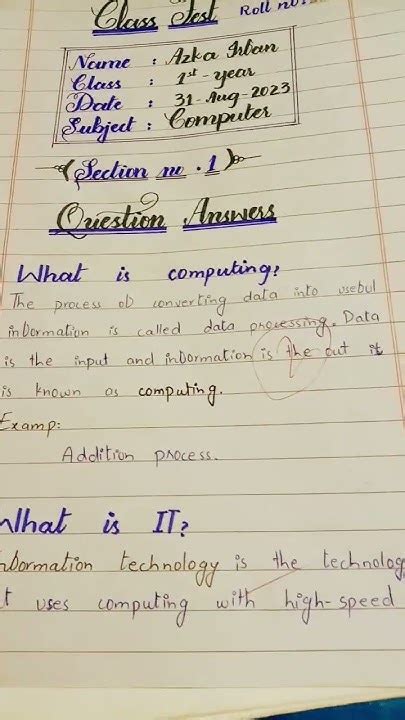 Class Test Roll no:
Name : Azka Irfan
Class : 1st-year
Date : 31-Aug-2023
Subject : Computer
Section no .1
Question Answers
What is computing?
The process of converting data into useful
information is called data processing. Data
is the input and information is the out it
is known as computing.
Examp:
Addition process.
What is IT?
Information technology is the technolog
t uses computing with high-speed